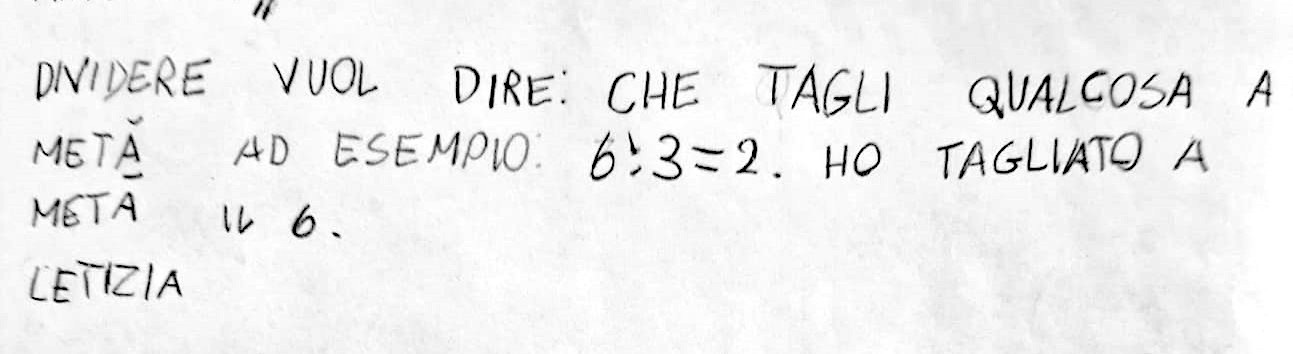 DIVIDERE VUOL DIRE: CHE TAGLI QUALCOSA A
METÀ AD ESEMPIO: 6:3=2. HO TAGLIATO A
METÀ IL 6.
LETIZIA